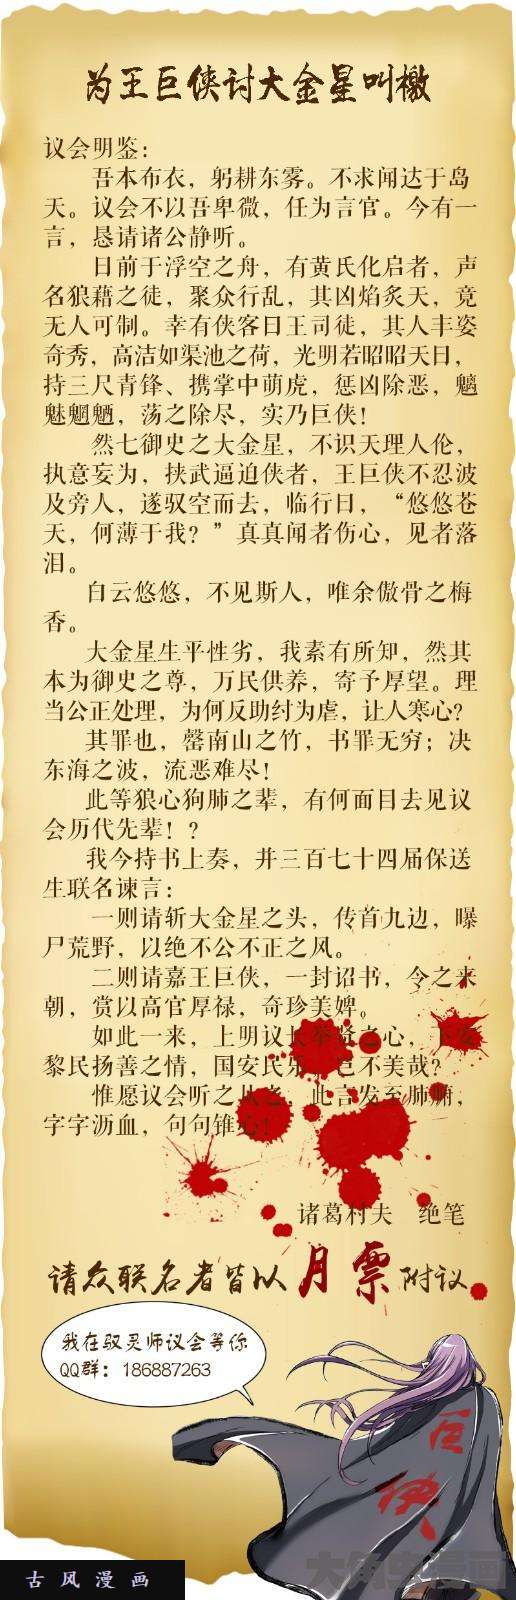 为王巨侠讨大金星叫檄
议会明鉴：
吾本布衣，躬耕东雾。不求闻达于岛
天。议会不以吾卑微，任为言官。今有一
言，恳请诸公静听。
日前于浮空之舟，有黄氏化启者，声
名狼藉之徒，聚众行乱，其凶焰炙天，竟
无人可制。幸有侠客曰王司徒，其人丰姿
奇秀，高洁如渠池之荷，光明若昭昭天日，
持三尺青锋、携掌中萌虎，惩凶除恶，魑
魅魍魉，荡之除尽，实乃巨侠！
然七御史之大金星，不识天理人伦，
执意妄为，挟武逼迫侠者，王巨侠不忍波
及旁人，遂驭空而去，临行曰，“悠悠苍
天，何薄于我？”真真闻者伤心，见者落
泪。
白云悠悠，不见斯人，唯余傲骨之梅
香。
大金星生平性劣，我素有所知，然其
本为御史之尊，万民供养，寄予厚望。理
当公正处理，为何反助纣为虐，让人寒心？
其罪也，罄南山之竹，书罪无穷；决
东海之波，流恶难尽！
此等狼心狗肺之辈，有何面目去见议
会历代先辈！？
我今持书上奏，并三百七十四届保送
生联名谏言：
一则请斩大金星之头，传首九边，曝
尸荒野，以绝不公不正之风。
二则请嘉王巨侠，一封诏书，令之来
朝，赏以高官厚禄，奇珍美婢。
如此一来，上明议长举贤之心，下安
黎民扬善之情，国安民乐，岂不美哉？
惟愿议会听之从之，此言发至肺腑，
字字沥血，句句锥心！
诸葛村夫 绝笔
请众联名者皆以月票附议
我在驭灵师议会等你
QQ群：186887263
巨侠
大角虫漫画
古风漫画